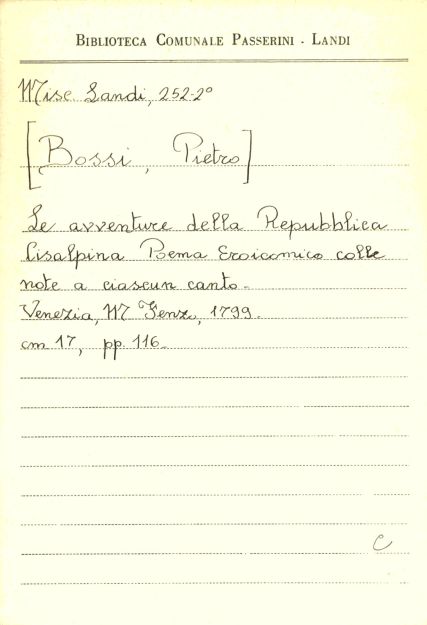 BIBLIOTECA COMUNALE PASSERINI - LANDI
Misc Landi, 252-2°
[Bossi, Pietro]
Le avventure della Repubblica
Cisalpina Poema Eroicomico colle
note a ciascun canto.
Venezia, M Fenzo, 1799.
cm 17, pp. 116.
C